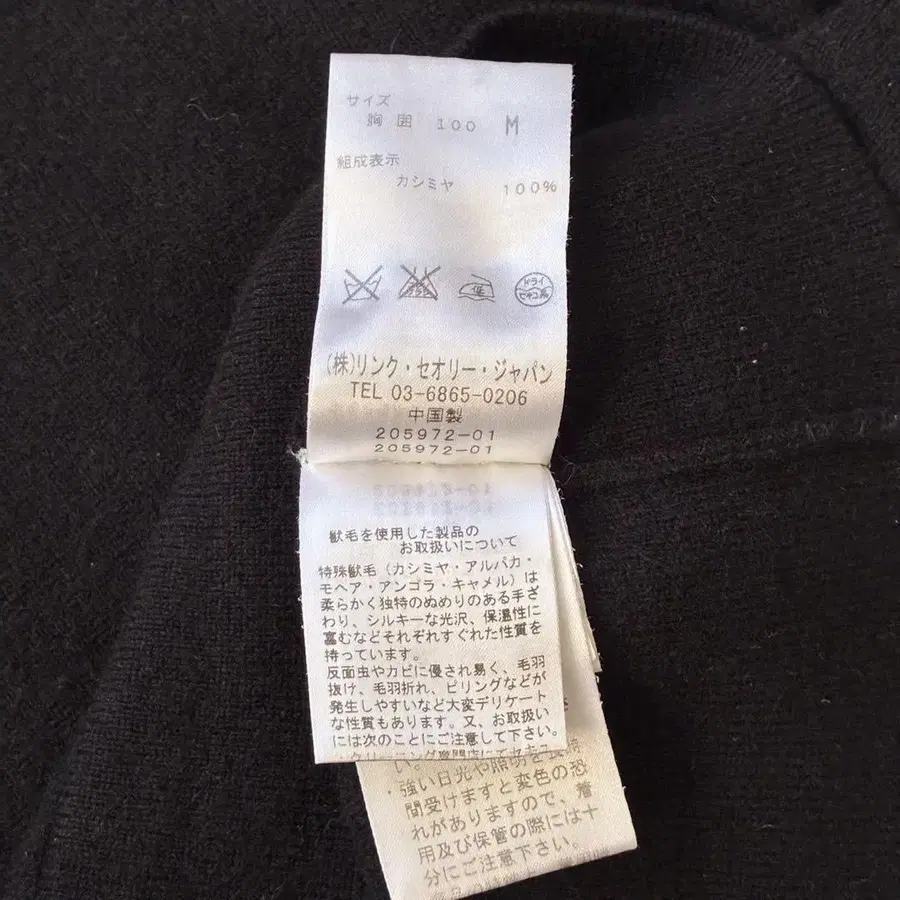 サイズ
胸囲 100 M
組成表示
カシミヤ 100%
低
ドライ
セキユ系
(株)リンク・セオリー・ジャパン
TEL 03-6865-0206
中国製
205972-01
205972-01
獣毛を使用した製品の
お取扱いについて
特殊獣毛(カシミヤ・アルパカ・
モヘア・アンゴラ・キャメル)は
柔らかく独特のぬめりのある手ざ
わり、シルキーな光沢、保温性に
富むなどそれぞれすぐれた性質を
持っています。
反面虫やカビに優され易く、毛羽
抜け、毛羽折れ、ピリングなどが
発生しやすいなど大変デリケート
な性質もあります。又、お取扱い
には次のことにご注意して下さい。
い。
・強い日光や照明を長時
間受けますと変色の恐
れがありますので、着
用及び保管の際には十
分にご注意下さい。